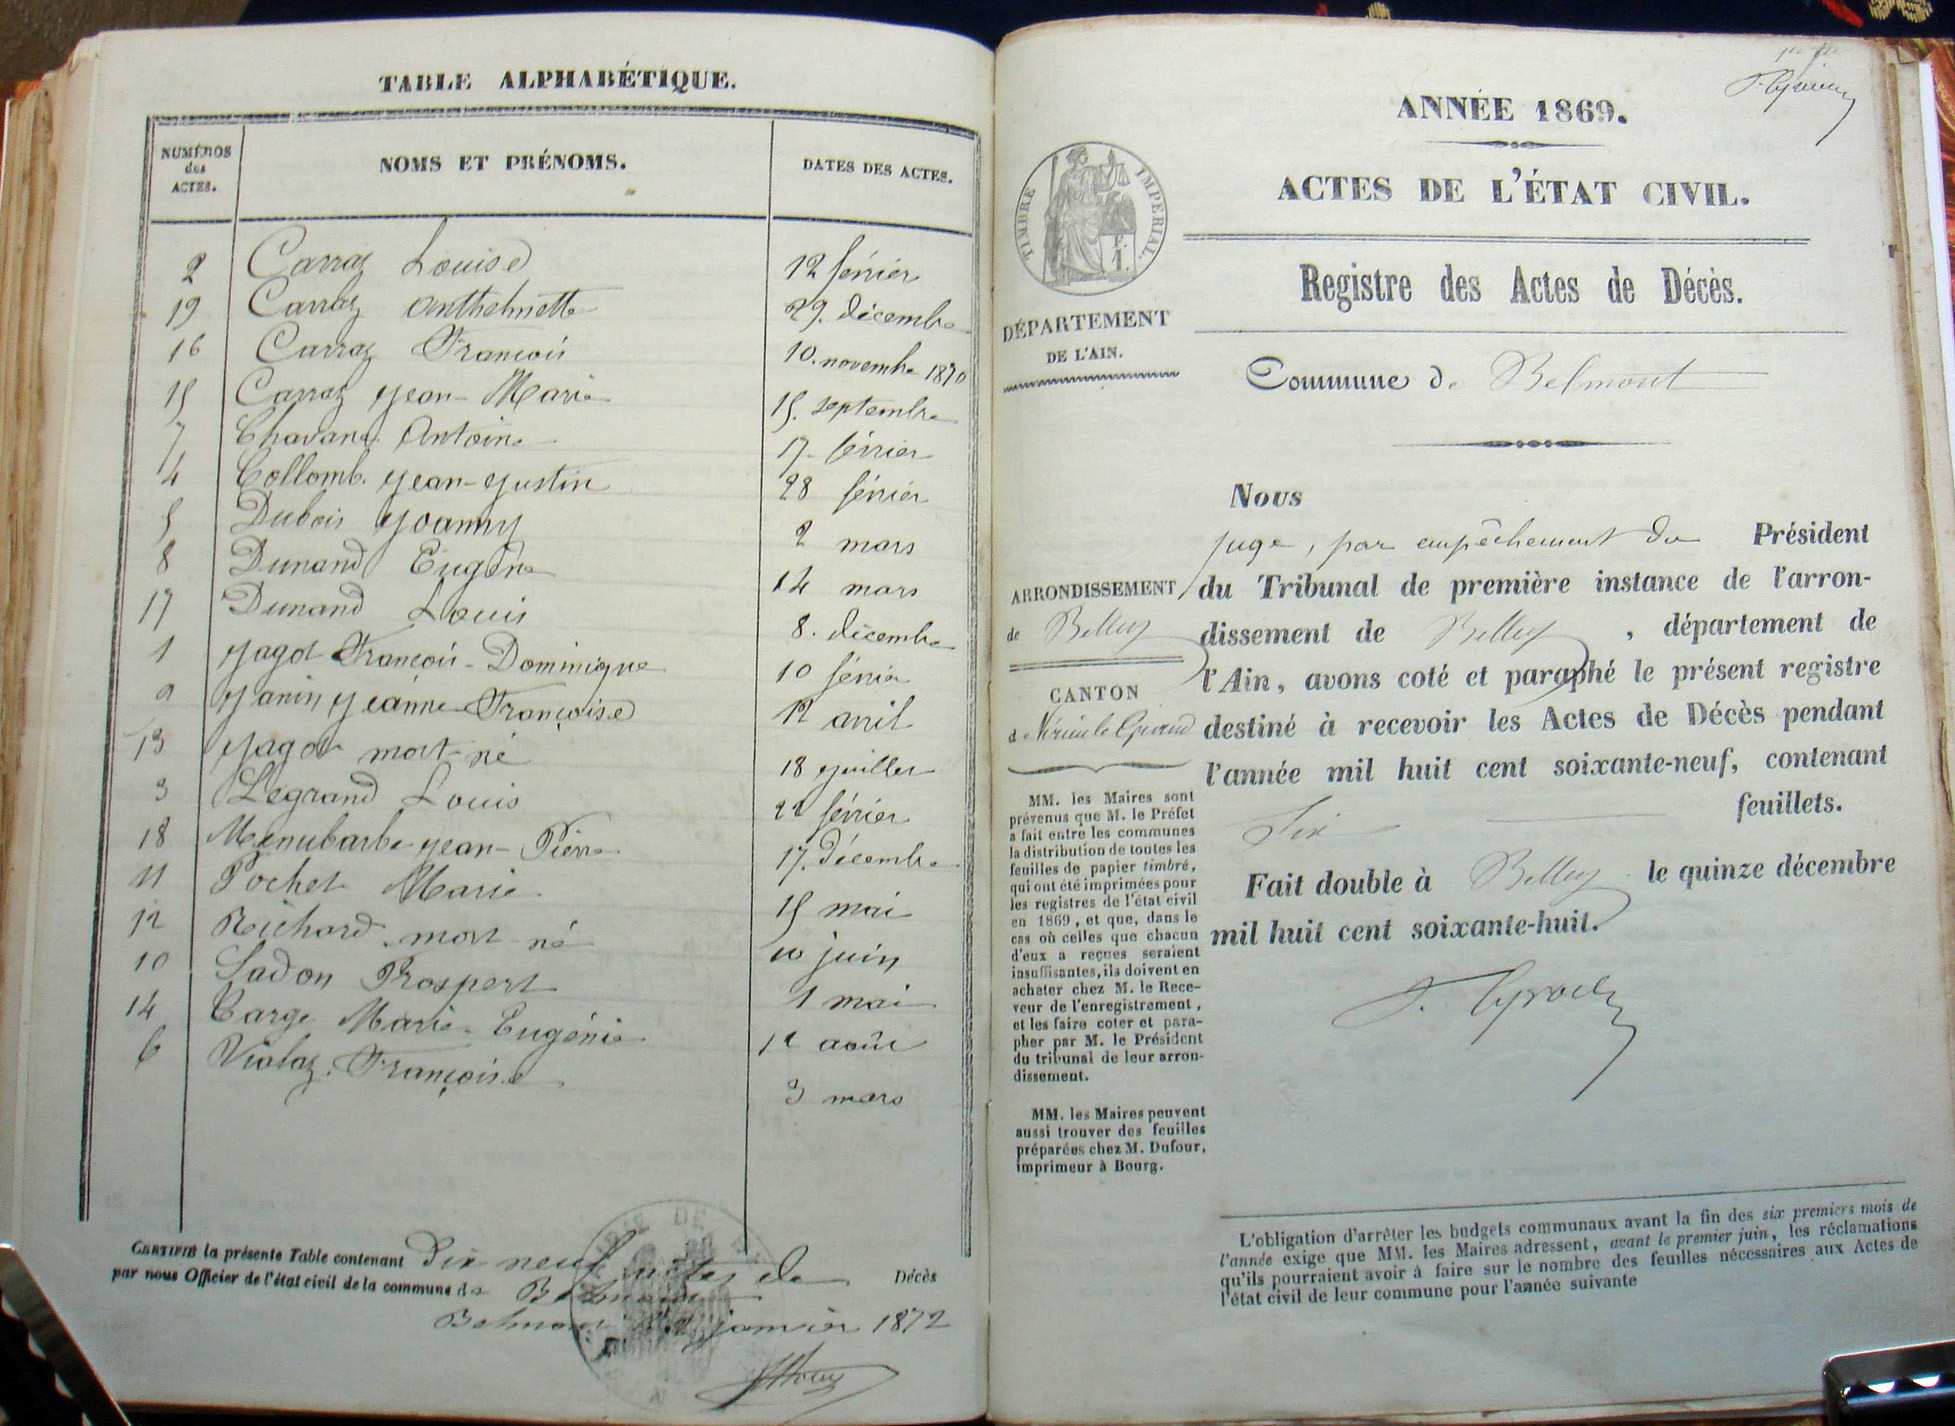 TABLE ALPHABÉTIQUE.
NUMÉROS des ACTES.
NOMS ET PRÉNOMS.
DATES DES ACTES.
2 Carraz Louise 12 février
19 Carraz Anthelmette 29. décembre
16 Carraz François 10. novembre 1870
15 Carraz Jean-Marie 15. septembre
7 Chavanes Antoine 17. février
4 Collomb. Jean-Justin 28 février
5 Dubois Joanny 2 mars
8 Dunand Eugène 14 mars
17 Dunand Louis 8. décembre
1 Jagot François-Dominique 10 février
9 Janin Jeanne-Françoise 12 avril
13 Jagot mort-né 18 juillet
3 Legrand Louis 22 février
18 Menubarbe Jean-Pierre 17. décembre
11 Pochet Marie 15 mai
12 Richard mort né 10 juin
10 Sadon Prospert 1 mai
14 Targe Marie-Eugénie 12 août
6 Violaz. Françoise 3 mars
CERTIFIÉ la présente Table contenant Dix neuf actes de Décès
par nous Officier de l'état civil de la commune de Belmont
Belmont janvier 1872
ANNÉE 1869.
ACTES DE L'ÉTAT CIVIL.
TIMBRE IMPÉRIAL.
Registre des Actes de Décès.
DÉPARTEMENT
DE L'AIN.
Commune de Belmont
Nous
juge, par empêchement du Président
du Tribunal de première instance de l'arron-
dissement de Belley, département de
l'Ain, avons coté et paraphé le présent registre
destiné à recevoir les Actes de Décès pendant
l'année mil huit cent soixante-neuf, contenant
Six feuillets.
Fait double à Belley le quinze décembre
mil huit cent soixante-huit.
ARRONDISSEMENT
de Belley
CANTON
de Virieu le Grand
MM. les Maires sont
prévenus que M. le Préfet
a fait entre les communes
la distribution de toutes les
feuilles de papier timbré,
qui ont été imprimées pour
les registres de l'état civil
en 1869, et que, dans le
cas où celles que chacun
d'eux a reçues seraient
insuffisantes, ils doivent en
acheter chez M. le Rece-
veur de l'enregistrement,
et les faire coter et para-
pher par M. le Président
du tribunal de leur arron-
dissement.
MM. les Maires peuvent
aussi trouver des feuilles
préparées chez M. Dufour,
imprimeur à Bourg.
L'obligation d'arrêter les budgets communaux avant la fin des six premiers mois de
l'année exige que MM. les Maires adressent, avant le premier juin, les réclamations
qu'ils pourraient avoir à faire sur le nombre des feuilles nécessaires aux Actes de
l'état civil de leur commune pour l'année suivante